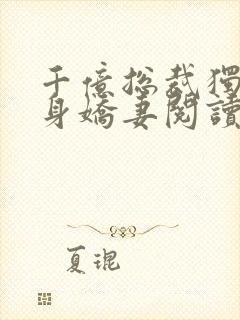 千億總裁獨
身嬌妻閱讀
夏琨